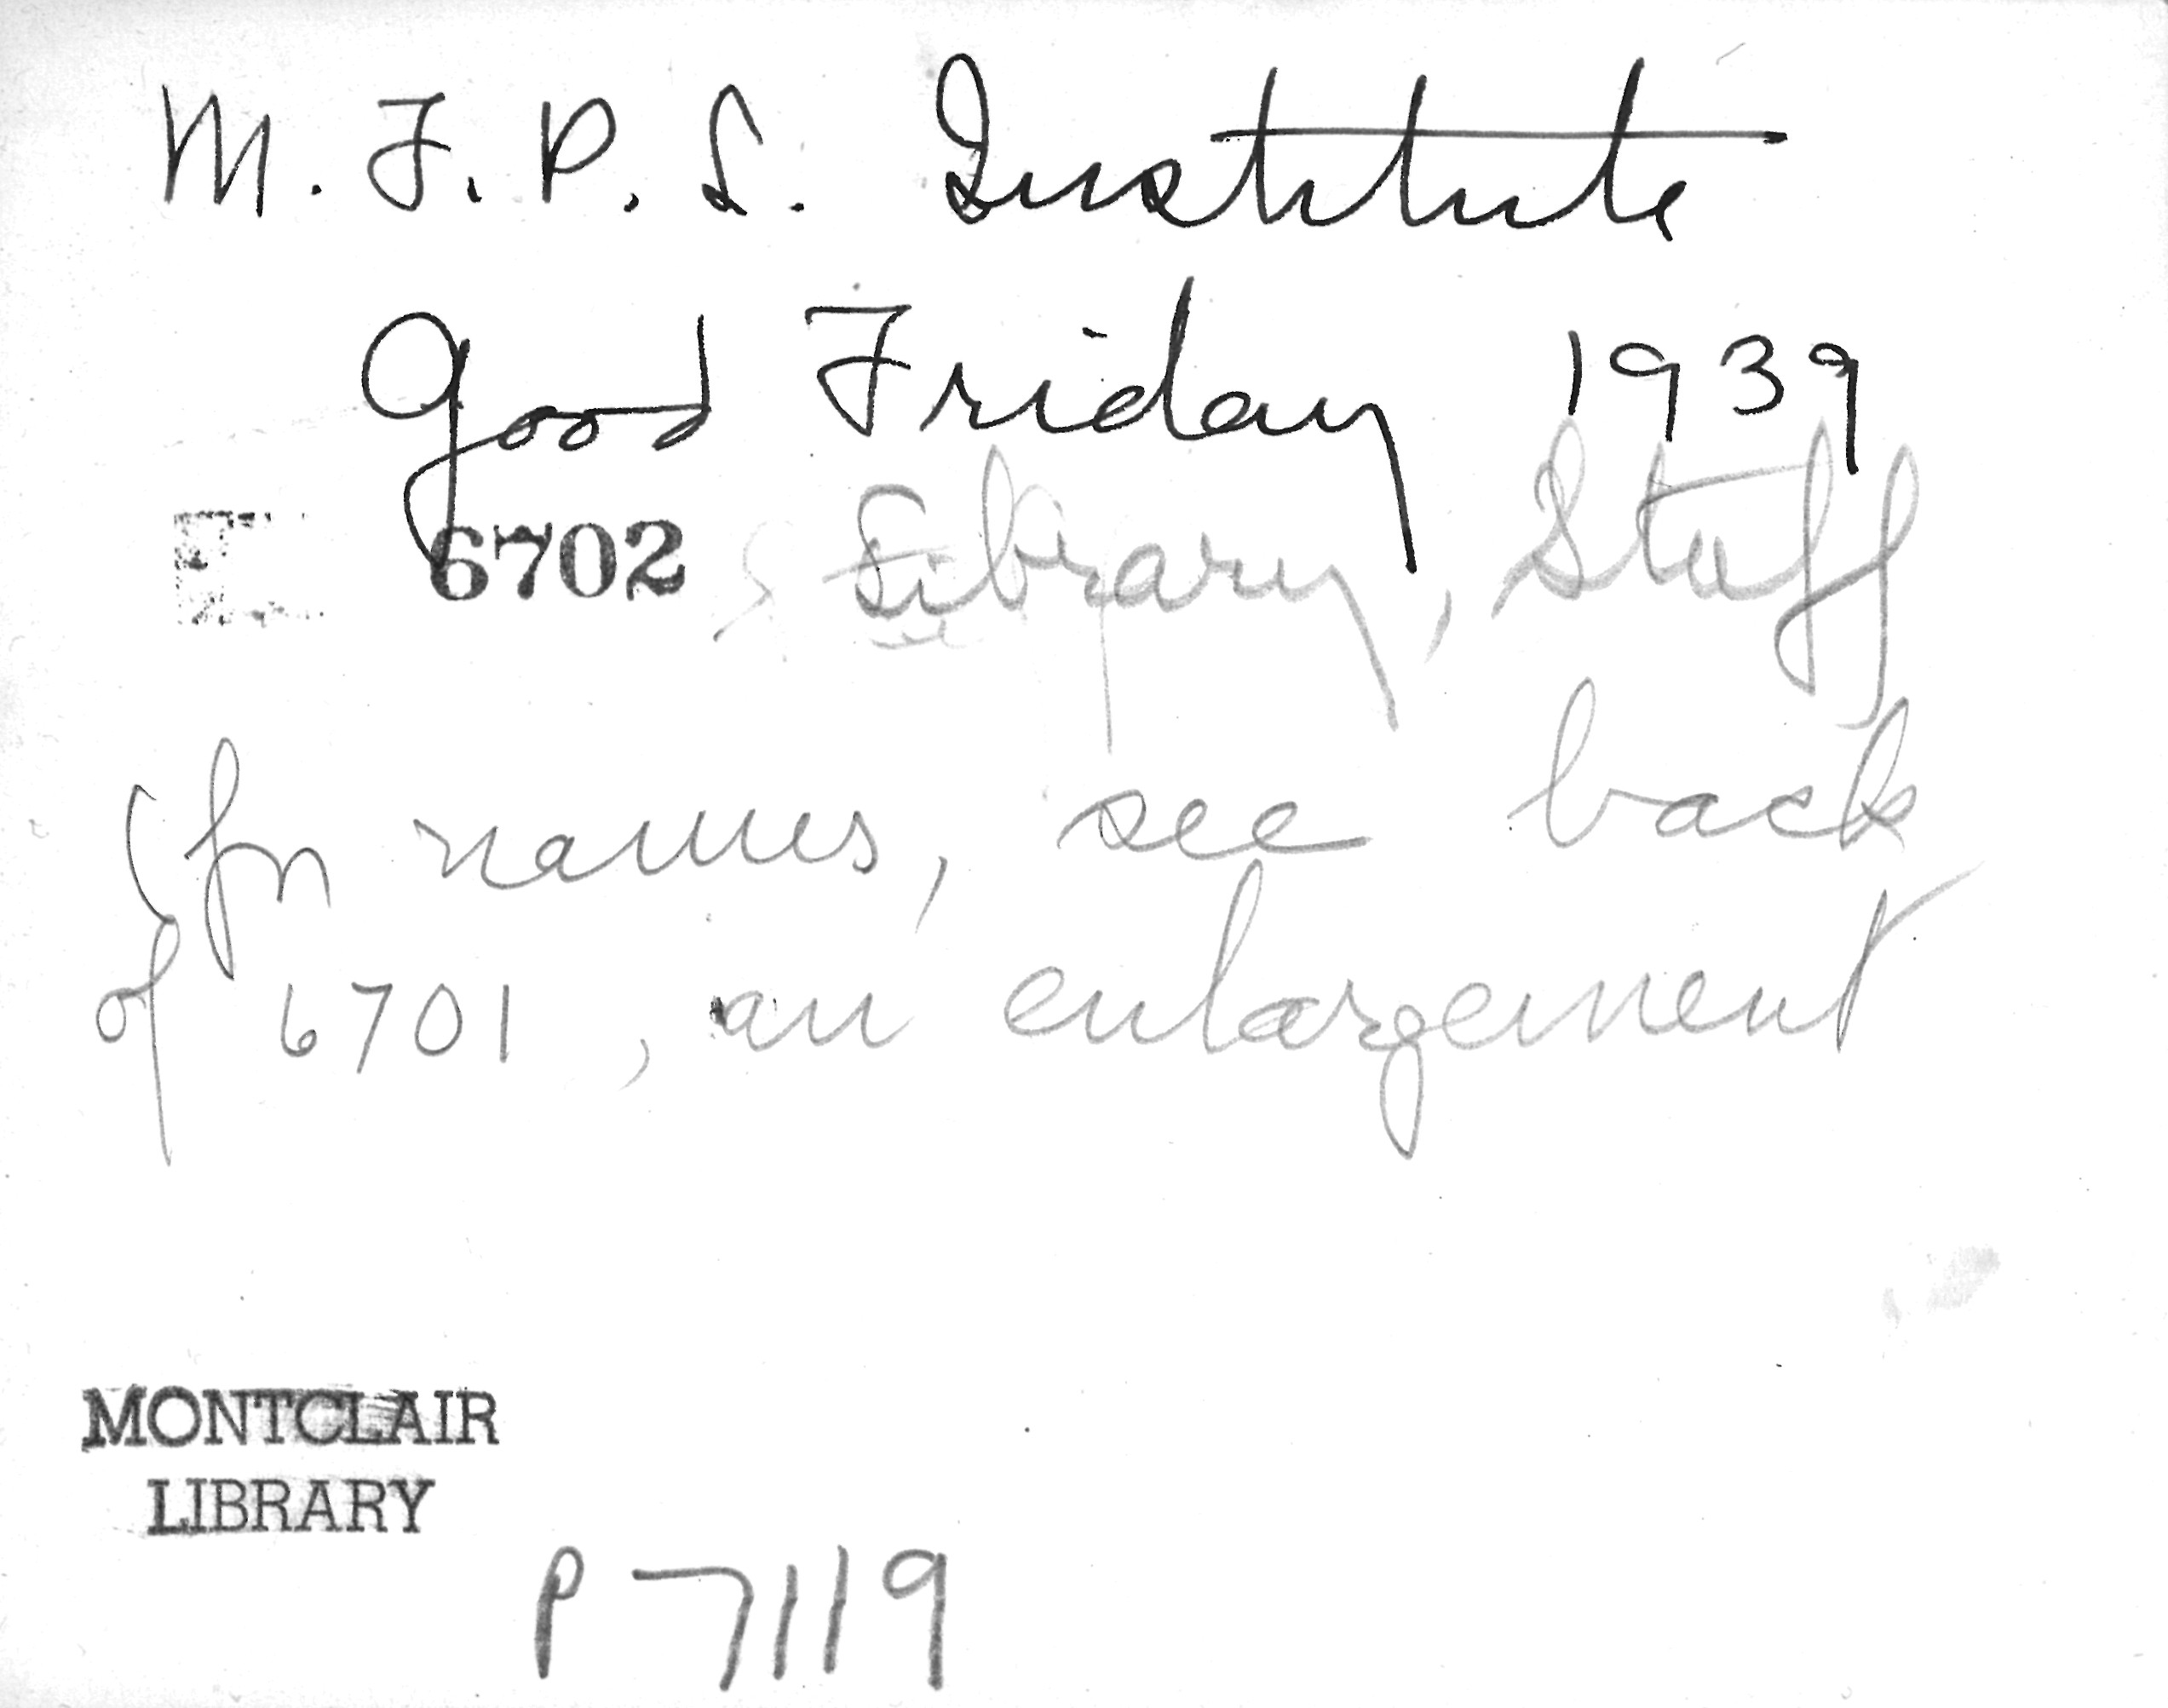 M. F. P. L. Institute
Good Friday 1939
6702 Library, Staff
(for names, see back
of 6701, an enlargement
MONTCLAIR
LIBRARY
P 7119